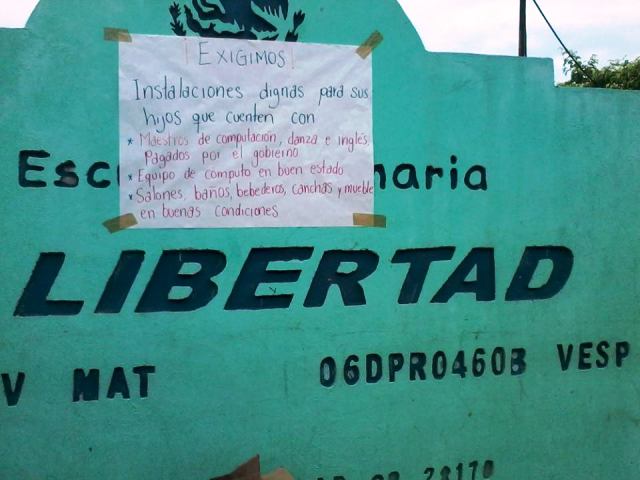 ¡EXIGIMOS!
Instalaciones dignas para sus
hijos que cuenten con
* Maestros de computación, danza e inglés,
Pagados por el gobierno
* Equipo de computo en buen estado
* Salones, baños, bebederos, canchas y mueble
en buenas condiciones
Esc maria
LIBERTAD
V MAT 06DPR0460B VESP
28170